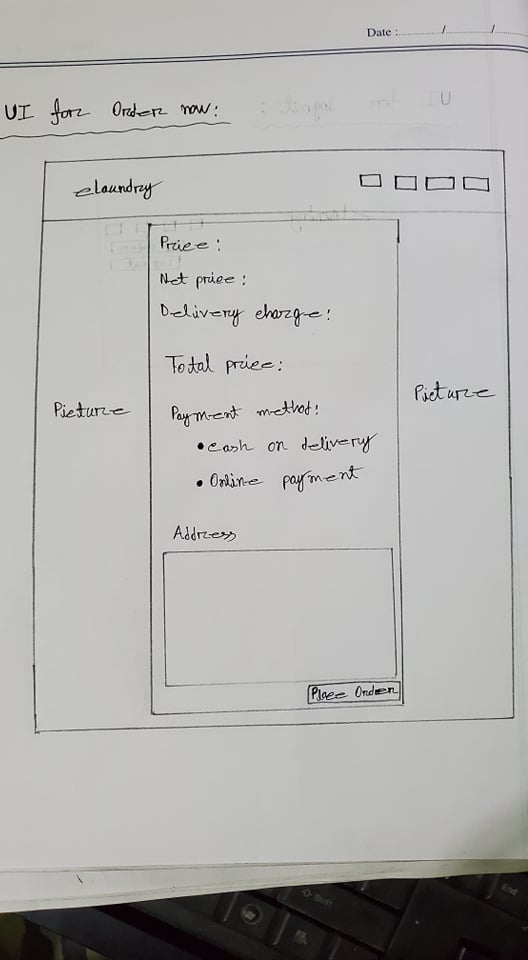 Date :
UI for Order now:
eLaundry
Price :
Net price :
Delivery charge :
Total price :
Picture
Picture
Payment method:
• cash on delivery
• Online payment
Address
Place Order
Shift
End